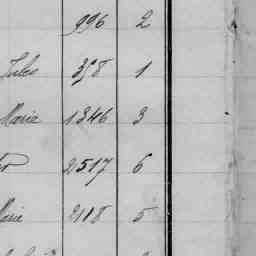 996 2
Jules 358 1
Maria 1346 3
2517 6
Marie 2118 5